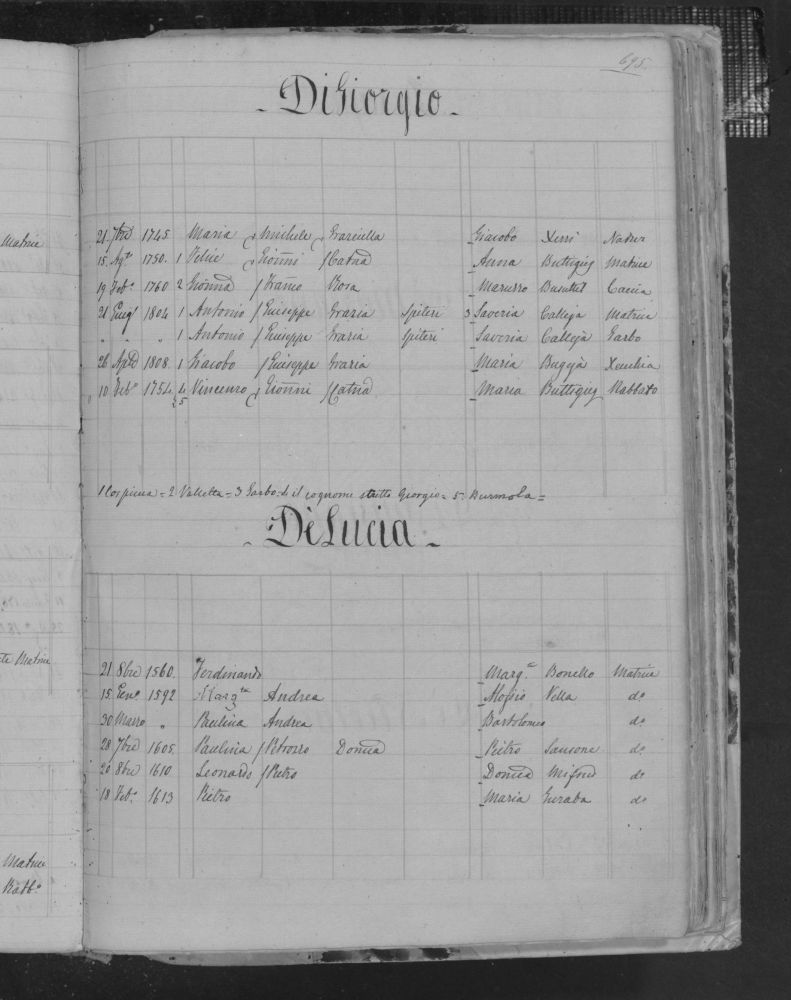 695.
- DiGiorgio -
21 7bre 1745 Maria Michele Graziella Giacobo Xerri Nadur
15 Agto 1750. 1 Felice Gionni Catnd Anna Buttigieg Matrice
19 Febo 1760 2 Gionnd Franco Rosa Maruzzo Busuttil Caccia
21 Giug 1804 1 Antonio Giuseppe Grazia Spiteri 3 Saveria Calleja Matrice
" " " 1 Antonio Giuseppe Grazia Spiteri Saveria Calleja Garbo
26 Aple 1808. 1 Giacobo Giuseppe Grazia Maria Bugeja Xeuchia
10 Febo 1754 4 Vincenzo Gionni Catnd Maria Buttigieg Rabbato
5
1 Cospicua = 2 Valletta = 3 Garbo: 4 il cognome scritto Giorgio = 5 - Burmola =
- DèLucia -
21 8bre 1560. Ferdinando Marga Bonello Matrice
15 Geno 1592 Margta Andrea Aloisio Vella do
30 Marzo " Paulina Andrea Bartolomeo do
28 7bre 1605 Paulina Petrozzo Domca Pietro Sansone do
20 8bre 1610 Leonardo Pietro Domca Mifsud do
18 Febo 1613 Pietro Maria Guraba do
Matrice
Matrice
Matrice
Rabbo